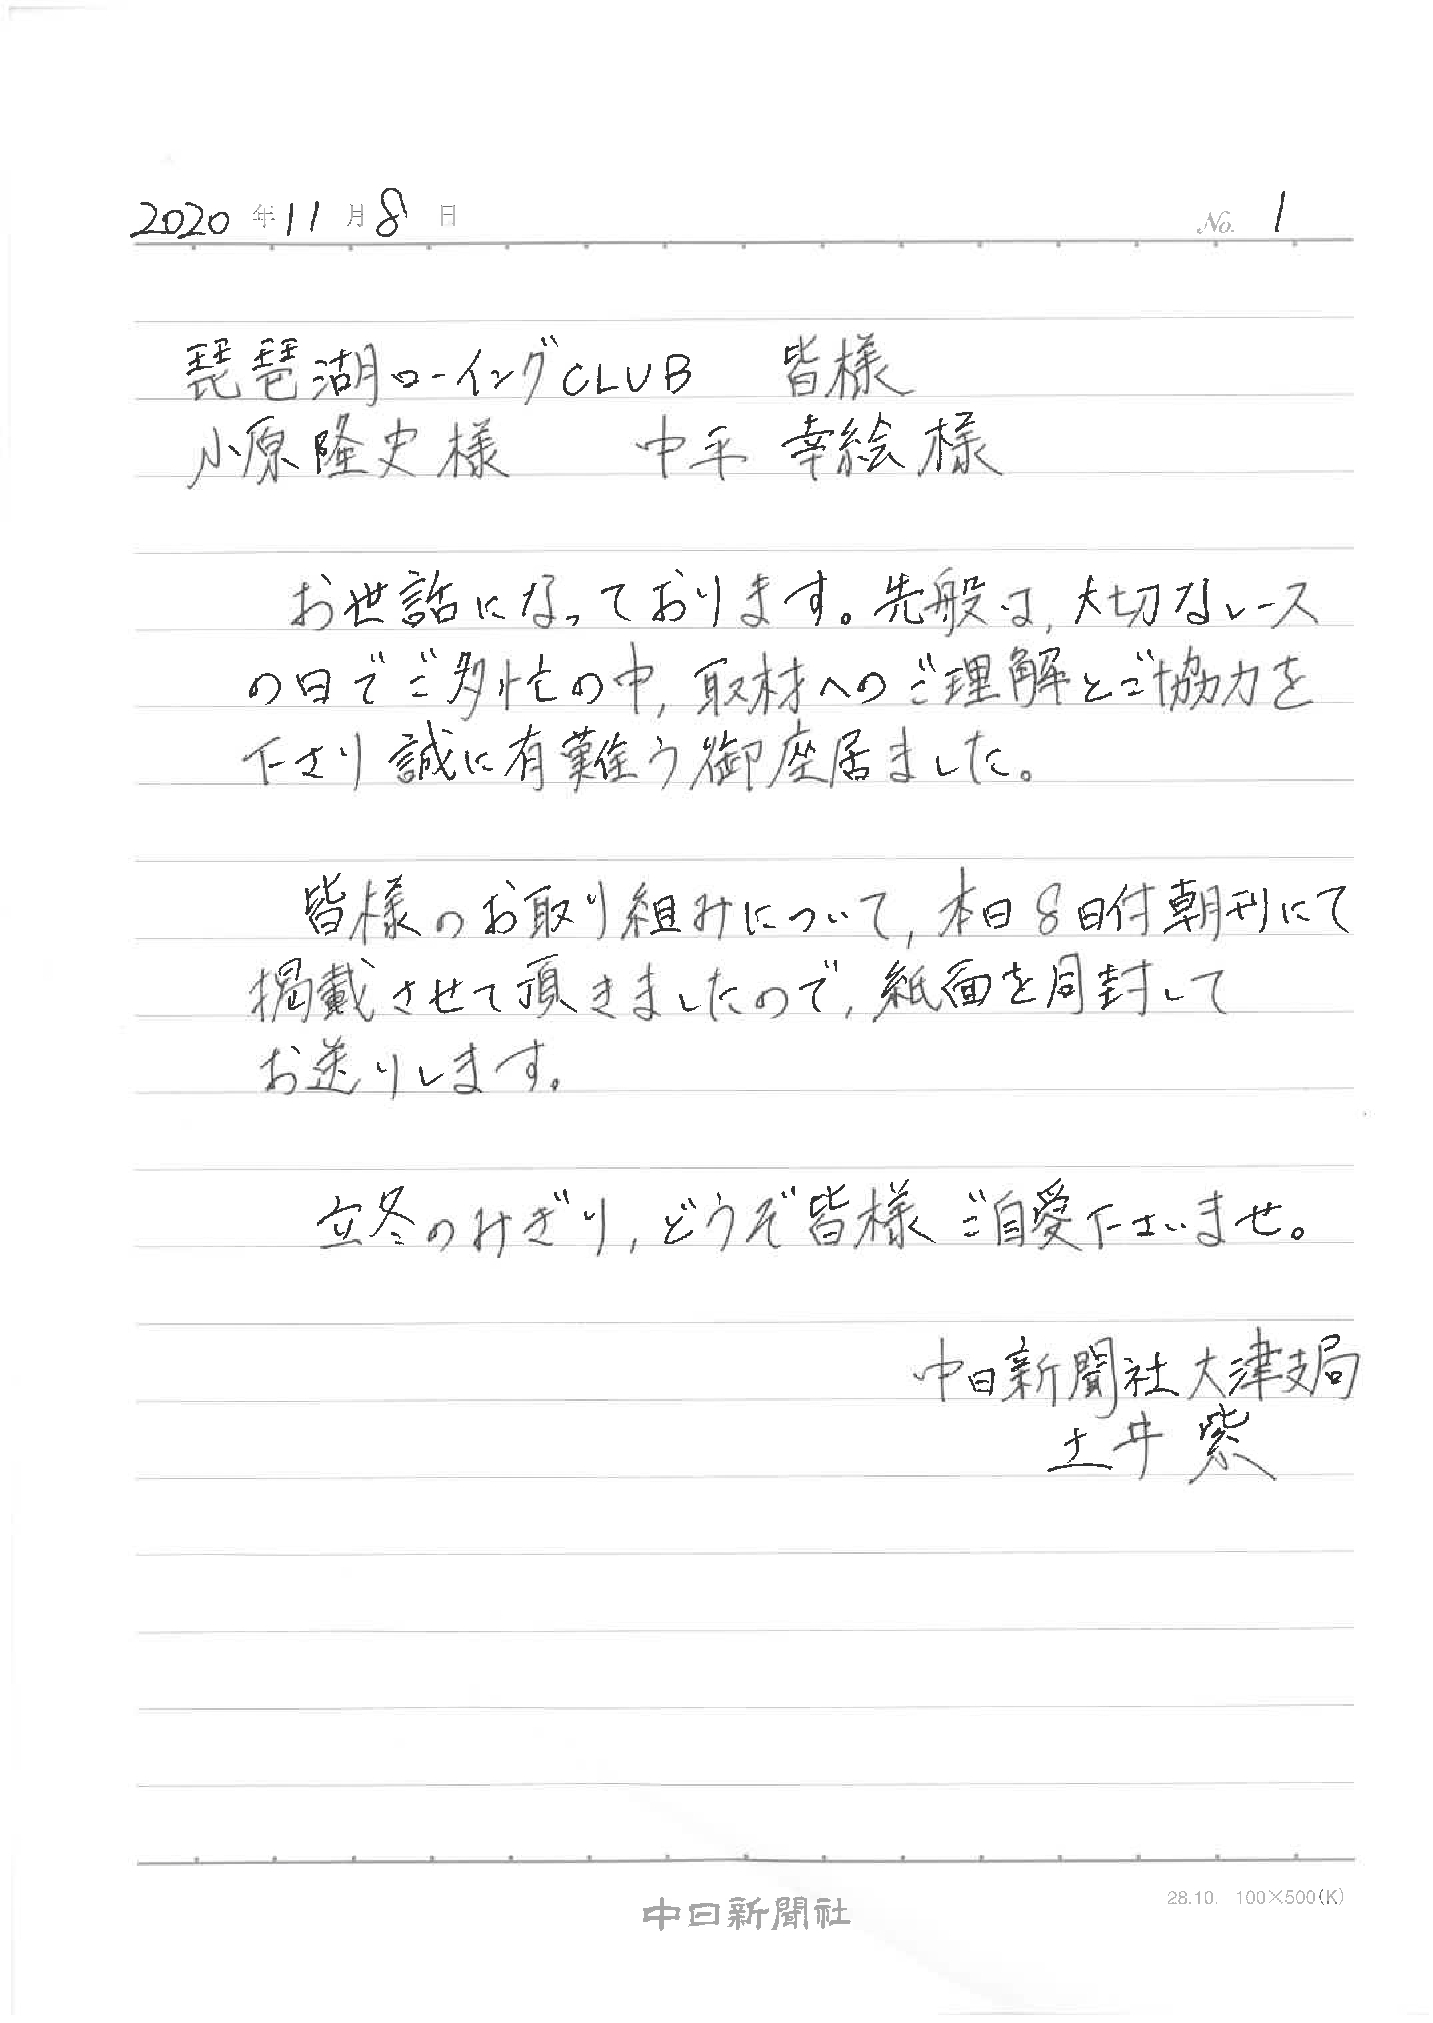 2020年11月8日 No. 1
琵琶湖ローイングCLUB 皆様
小原隆史様 中平 幸絵様
お世話になっております。先般は、大切なレース
の日でご多忙の中、取材へのご理解とご協力を
下さり誠に有難う御座居ました。
皆様のお取り組みについて、本日8日付朝刊にて
掲載させて頂きましたので、紙面を同封して
お送りします。
立冬のみぎり、どうぞ皆様ご自愛下さいませ。
中日新聞社大津支局
土井 紫
中日新聞社
28.10. 100×500(K)